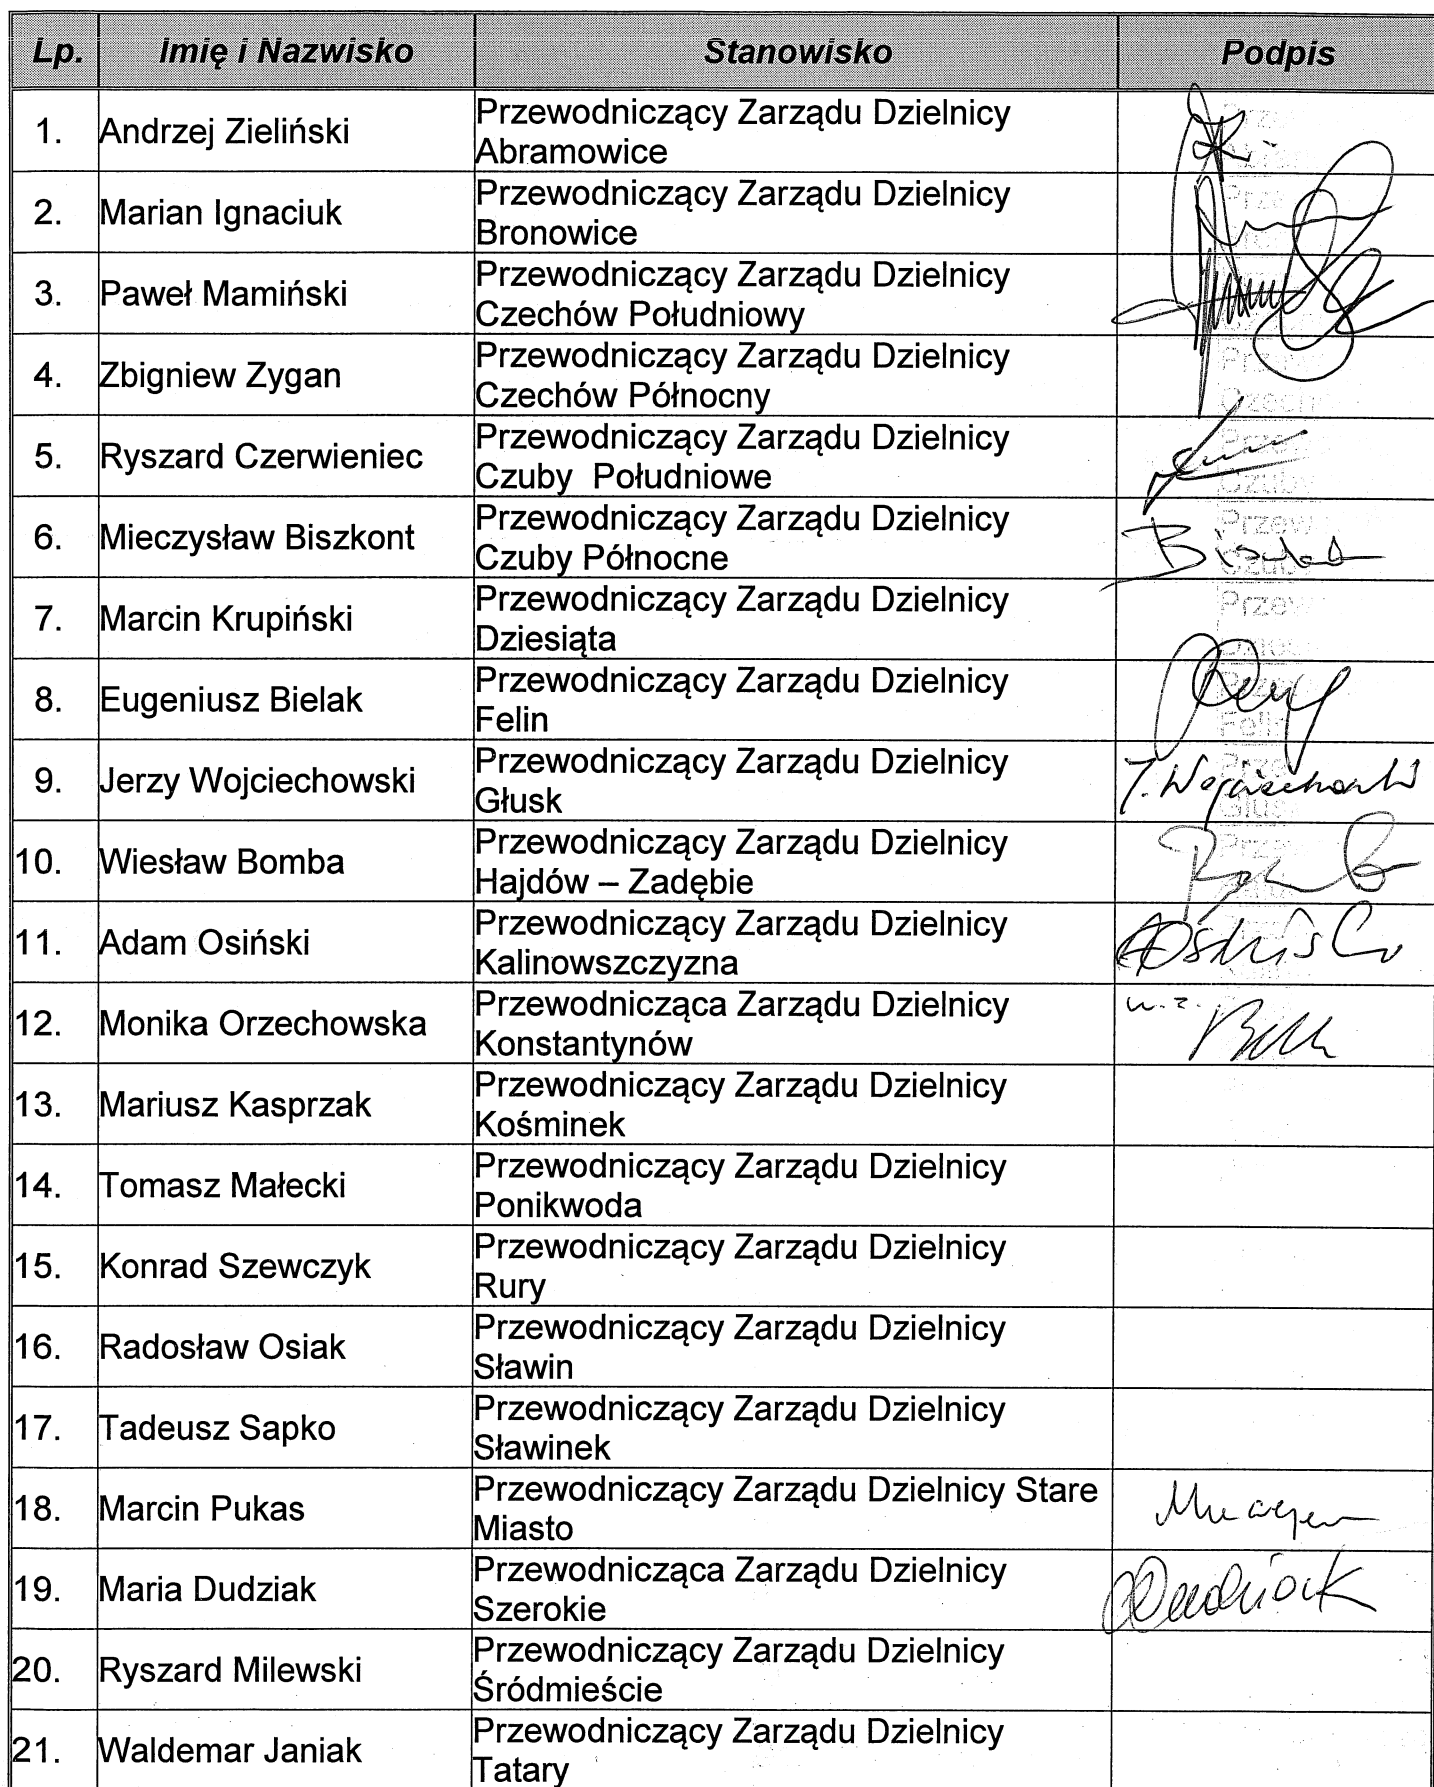 Lp. Imię i Nazwisko Stanowisko Podpis
1. Andrzej Zieliński Przewodniczący Zarządu Dzielnicy
Abramowice
2. Marian Ignaciuk Przewodniczący Zarządu Dzielnicy
Bronowice
3. Paweł Mamiński Przewodniczący Zarządu Dzielnicy
Czechów Południowy
4. Zbigniew Zygan Przewodniczący Zarządu Dzielnicy
Czechów Północny
5. Ryszard Czerwieniec Przewodniczący Zarządu Dzielnicy
Czuby Południowe
6. Mieczysław Biszkont Przewodniczący Zarządu Dzielnicy
Czuby Północne
7. Marcin Krupiński Przewodniczący Zarządu Dzielnicy
Dziesiąta
8. Eugeniusz Bielak Przewodniczący Zarządu Dzielnicy
Felin
9. Jerzy Wojciechowski Przewodniczący Zarządu Dzielnicy
Głusk J. Wojciechowski
10. Wiesław Bomba Przewodniczący Zarządu Dzielnicy
Hajdów – Zadębie
11. Adam Osiński Przewodniczący Zarządu Dzielnicy
Kalinowszczyzna
12. Monika Orzechowska Przewodnicząca Zarządu Dzielnicy w.z.
Konstantynów
13. Mariusz Kasprzak Przewodniczący Zarządu Dzielnicy
Kośminek
14. Tomasz Małecki Przewodniczący Zarządu Dzielnicy
Ponikwoda
15. Konrad Szewczyk Przewodniczący Zarządu Dzielnicy
Rury
16. Radosław Osiak Przewodniczący Zarządu Dzielnicy
Sławin
17. Tadeusz Sapko Przewodniczący Zarządu Dzielnicy
Sławinek
18. Marcin Pukas Przewodniczący Zarządu Dzielnicy Stare
Miasto
19. Maria Dudziak Przewodnicząca Zarządu Dzielnicy
Szerokie
20. Ryszard Milewski Przewodniczący Zarządu Dzielnicy
Śródmieście
21. Waldemar Janiak Przewodniczący Zarządu Dzielnicy
Tatary